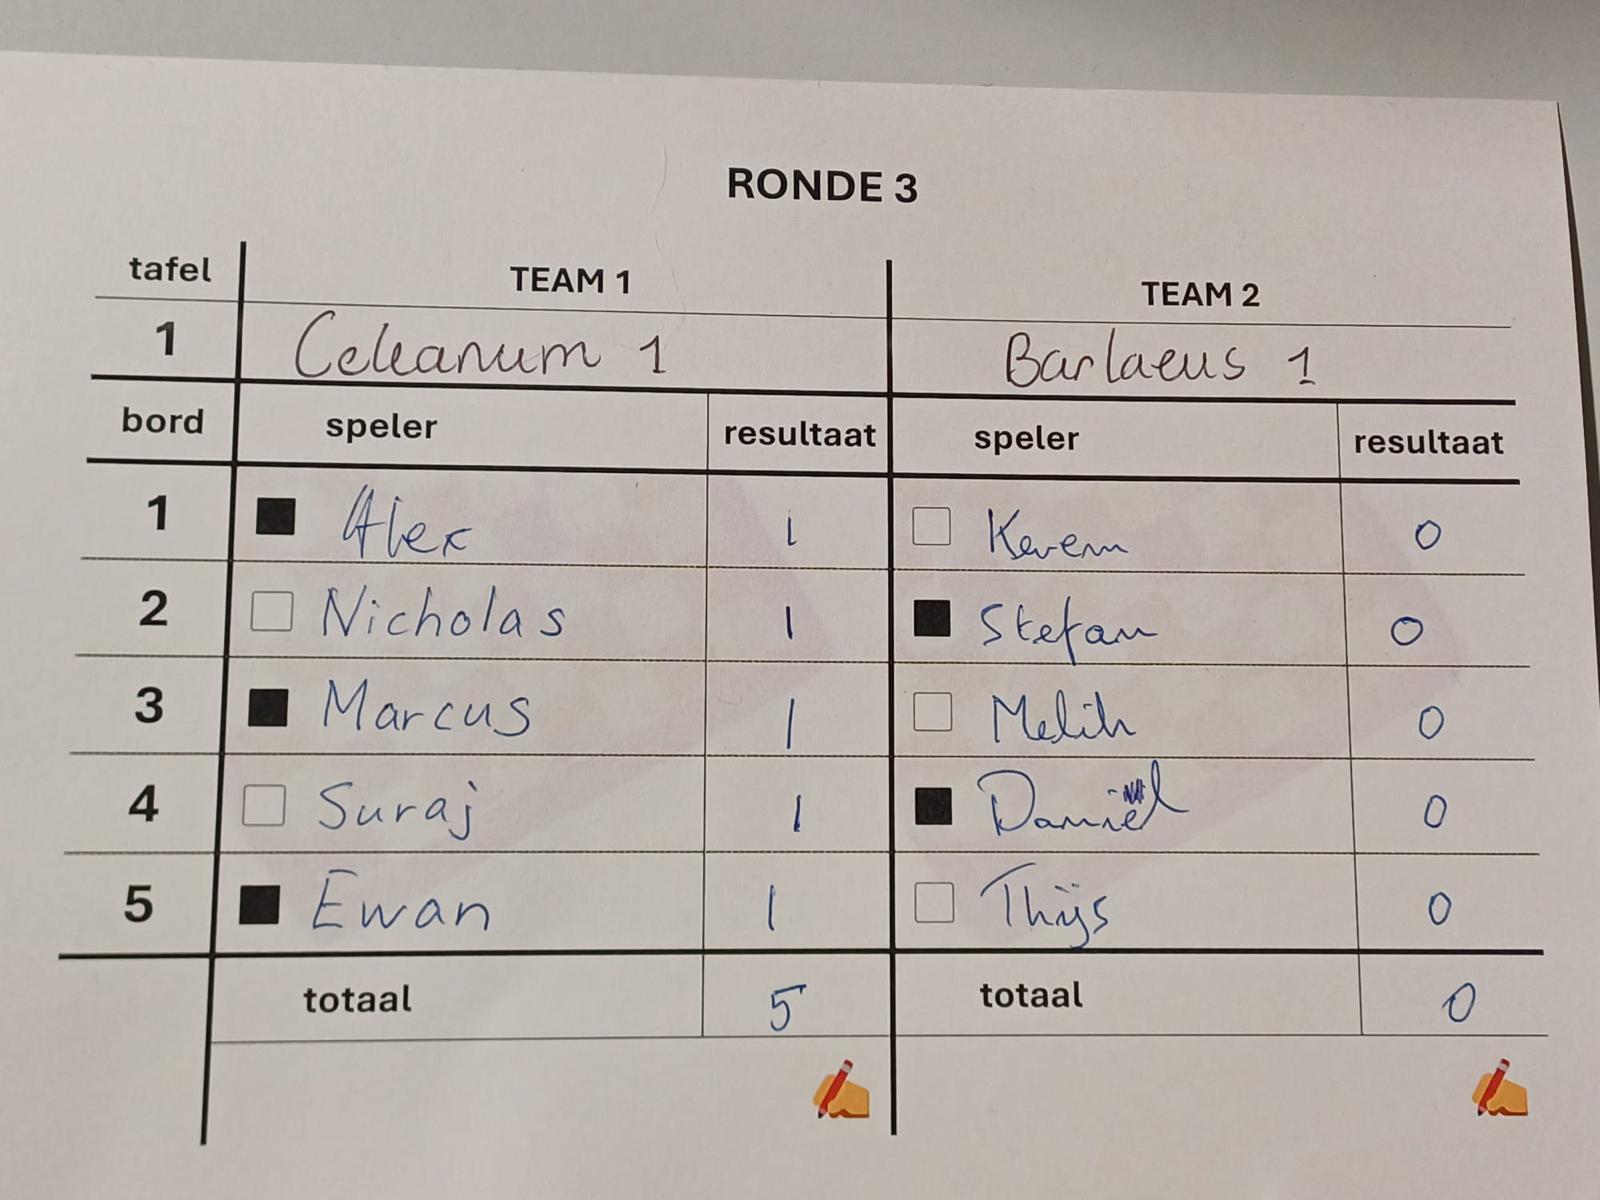 RONDE 3
tafel TEAM 1 TEAM 2
1 Celeanum 1 Barlaeus 1
bord speler resultaat speler resultaat
1 Alex 1 Kerem 0
2 Nicholas 1 Stefan 0
3 Marcus 1 Melih 0
4 Suraj 1 Daniël 0
5 Ewan 1 Thijs 0
totaal 5 totaal 0